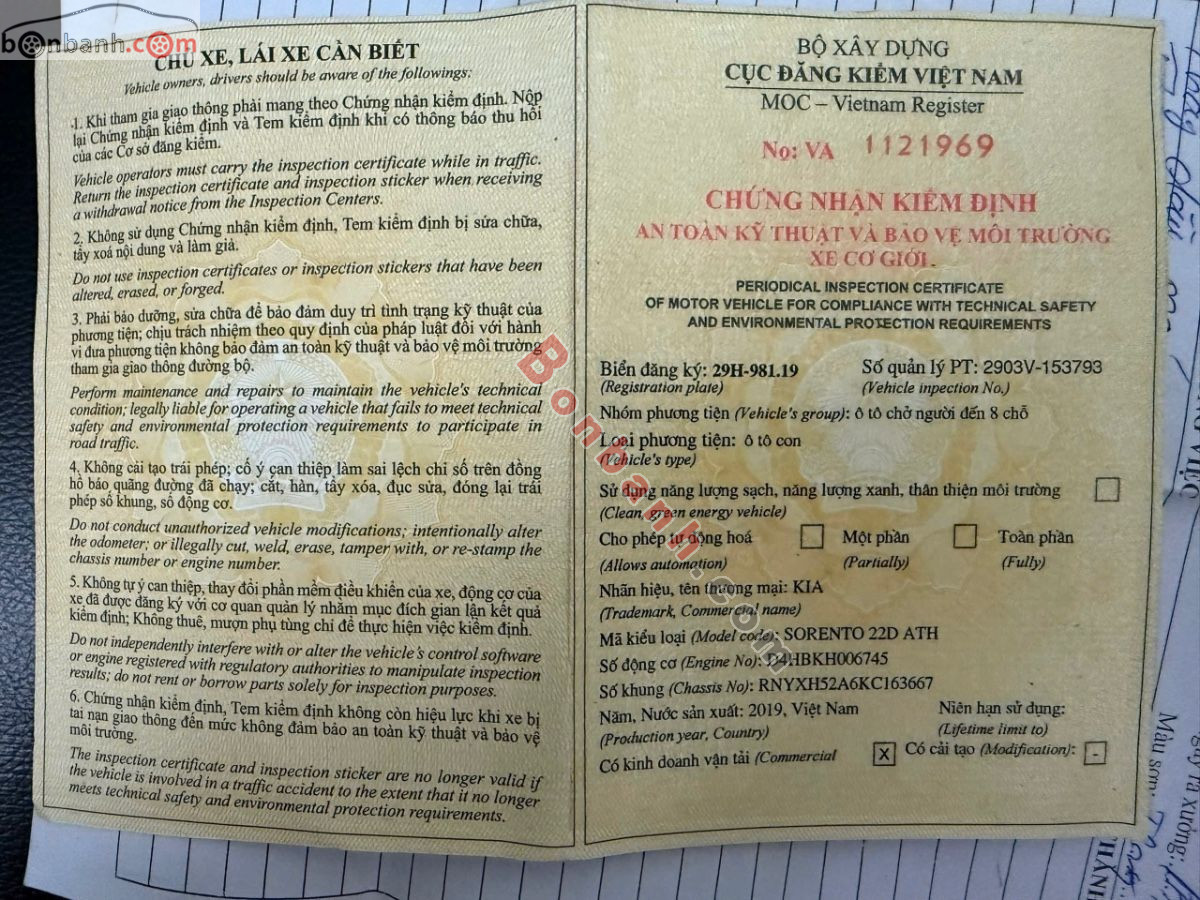 bonbanh.com
CHỦ XE, LÁI XE CẦN BIẾT
Vehicle owners, drivers should be aware of the followings:
1. Khi tham gia giao thông phải mang theo Chứng nhận kiểm định. Nộp
lại Chứng nhận kiểm định và Tem kiểm định khi có thông báo thu hồi
của các Cơ sở đăng kiểm.
Vehicle operators must carry the inspection certificate while in traffic.
Return the inspection certificate and inspection sticker when receiving
a withdrawal notice from the Inspection Centers.
2. Không sử dụng Chứng nhận kiểm định, Tem kiểm định bị sửa chữa,
tẩy xoá nội dung và làm giả.
Do not use inspection certificates or inspection stickers that have been
altered, erased, or forged.
3. Phải bảo dưỡng, sửa chữa để bảo đảm duy trì tình trạng kỹ thuật của
phương tiện; chịu trách nhiệm theo quy định của pháp luật đối với hành
vi đưa phương tiện không bảo đảm an toàn kỹ thuật và bảo vệ môi trường
tham gia giao thông đường bộ.
Perform maintenance and repairs to maintain the vehicle's technical
condition; legally liable for operating a vehicle that fails to meet technical
safety and environmental protection requirements to participate in
road traffic.
4. Không cải tạo trái phép; cố ý can thiệp làm sai lệch chỉ số trên đồng
hồ báo quãng đường đã chạy; cắt, hàn, tẩy xóa, đục sửa, đóng lại trái
phép số khung, số động cơ.
Do not conduct unauthorized vehicle modifications; intentionally alter
the odometer; or illegally cut, weld, erase, tamper with, or re-stamp the
chassis number or engine number.
5. Không tự ý can thiệp, thay đổi phần mềm điều khiển của xe, động cơ của
xe đã được đăng ký với cơ quan quản lý nhằm mục đích gian lận kết quả
kiểm định; Không thuê, mượn phụ tùng chỉ để thực hiện việc kiểm định.
Do not independently interfere with or alter the vehicle's control software
or engine registered with regulatory authorities to manipulate inspection
results; do not rent or borrow parts solely for inspection purposes.
6. Chứng nhận kiểm định, Tem kiểm định không còn hiệu lực khi xe bị
tai nạn giao thông đến mức không đảm bảo an toàn kỹ thuật và bảo vệ
môi trường.
The inspection certificate and inspection sticker are no longer valid if
the vehicle is involved in a traffic accident to the extent that it no longer
meets technical safety and environmental protection requirements.
BỘ XÂY DỰNG
CỤC ĐĂNG KIỂM VIỆT NAM
MOC – Vietnam Register
No: VA 1121969
CHỨNG NHẬN KIỂM ĐỊNH
AN TOÀN KỸ THUẬT VÀ BẢO VỆ MÔI TRƯỜNG
XE CƠ GIỚI.
PERIODICAL INSPECTION CERTIFICATE
OF MOTOR VEHICLE FOR COMPLIANCE WITH TECHNICAL SAFETY
AND ENVIRONMENTAL PROTECTION REQUIREMENTS
Biển đăng ký: 29H-981.19 Số quản lý PT: 2903V-153793
(Registration plate) (Vehicle inpection No.)
Nhóm phương tiện (Vehicle's group): ô tô chở người đến 8 chỗ
Loại phương tiện: ô tô con
(Vehicle's type)
Sử dụng năng lượng sạch, năng lượng xanh, thân thiện môi trường
(Clean, green energy vehicle)
Cho phép tự động hoá Một phần Toàn phần
(Allows automation) (Partially) (Fully)
Nhãn hiệu, tên thương mại: KIA
(Trademark, Commercial name)
Mã kiểu loại (Model code): SORENTO 22D ATH
Số động cơ (Engine No): D4HBKH006745
Số khung (Chassis No): RNYXH52A6KC163667
Năm, Nước sản xuất: 2019, Việt Nam Niên hạn sử dụng:
(Production year, Country) (Lifetime limit to)
Có kinh doanh vận tải (Commercial X Có cải tạo (Modification): -
Bonbanh.com
VỰC
Màu sơn:
ra xưởng: